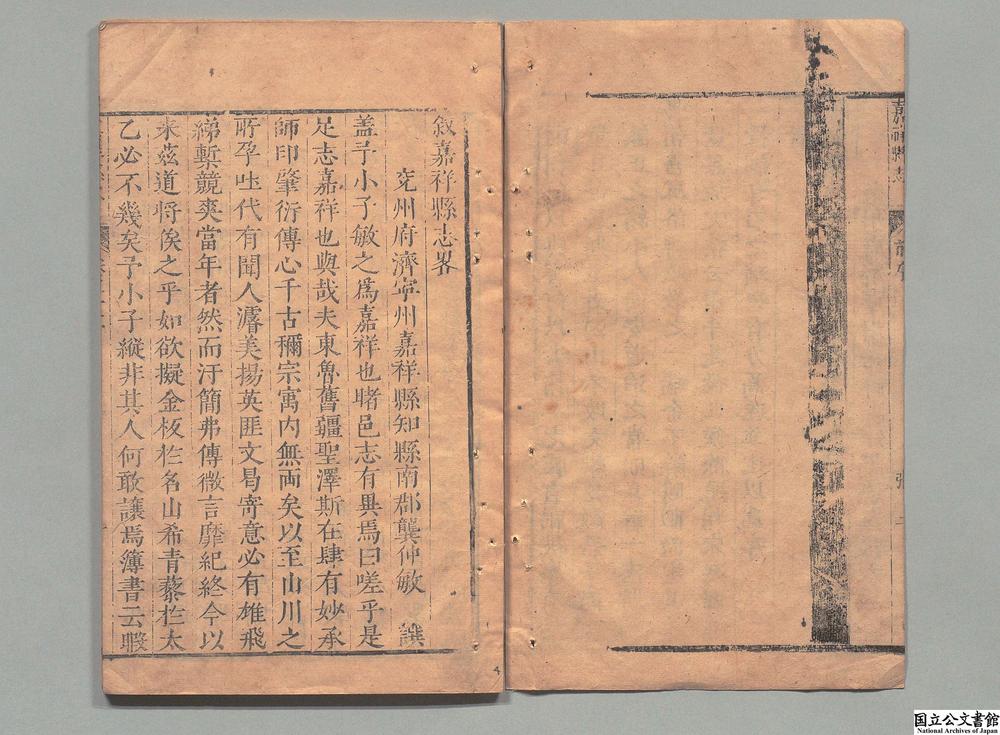 嘉祥縣志
敘嘉祥縣志畧
兖州府濟寧州嘉祥縣知縣南郡龔仲敏 譔
盖予小子敏之爲嘉祥也睹邑志有異焉曰嗟乎是
足志嘉祥也與哉夫東魯舊疆聖澤斯在肆有妙承
師印肇衍傳心千古禰宗寓内無兩矣以至山川之
所孕毓代有聞人濬美揚英匪文曷寄意必有雄飛
綈槧競爽當年者然而汗簡弗傳微言靡紀終今以
来兹道将俟之乎如欲擬金板於名山希青藜於太
乙必不幾矣予小子縱非其人何敢讓焉簿書云暇
国立公文書館
National Archives of Japan